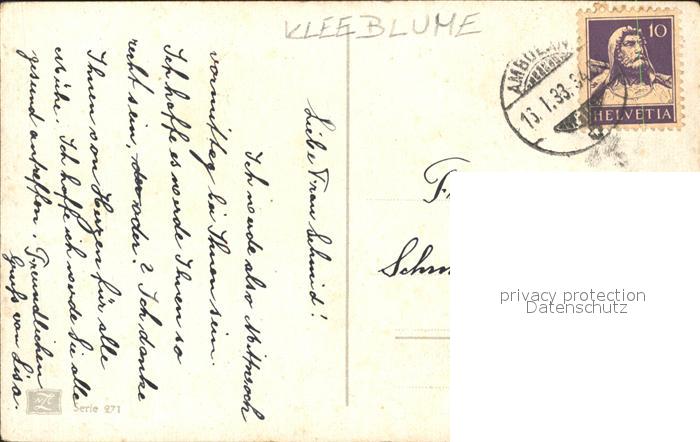 KLEEBLUME
10
HELVETIA
13.I.33.
Liebe Frau Schmid!
Ich werde also Mittwoch
vormittag bei Ihnen sein.
Ich hoffe es werde Ihnen so
recht sein, oder? Ich danke
Ihnen von Herzen für alle
Mühe. Ich hoffe ich werde Sie alle
gesund antreffen. Freundlichen
Gruß von Lisa.
Serie 271
privacy protection
Datenschutz